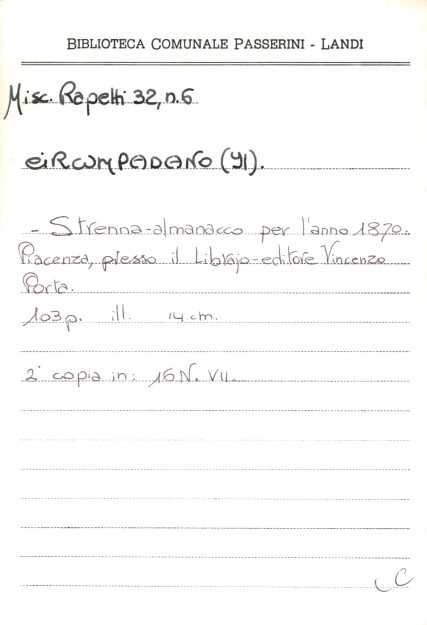 BIBLIOTECA COMUNALE PASSERINI - LANDI
Misc. Rapetti 32, n. 6
CIRCUMPADANO (Il).
- Strenna-almanacco per l'anno 1870.
Piacenza, presso il Librajo-editore Vincenzo
Porta.
103 p. ill. 14 cm.
2ª copia in: 16 N. VII.
C